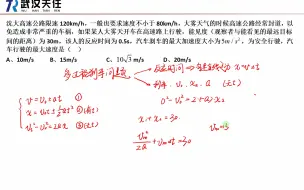 武汉天任
汉大高速公路限速120km/h，一般也要求速度不小于80km/h，大雾天气的时候高速公路经常封道，以
免造成非常严重的车祸，如果某人大雾天开车在高速路上行驶，能见度（观察者与能看见的最远目标
间的距离）为30m，该人的反应时间为0.5s，汽车刹车的最大加速度大小为5m/s²，为安全行驶，汽
车行驶的最大速度是（ ）
A．10m/s B．15m/s C．10√3 m/s D．20m/s
① v = v₀ + at
② x = v₀t + ½at²
③ v² - v₀² = 2ax
0² - v₀² = 2(-a)x₂
x₁ + x₂ = 30.